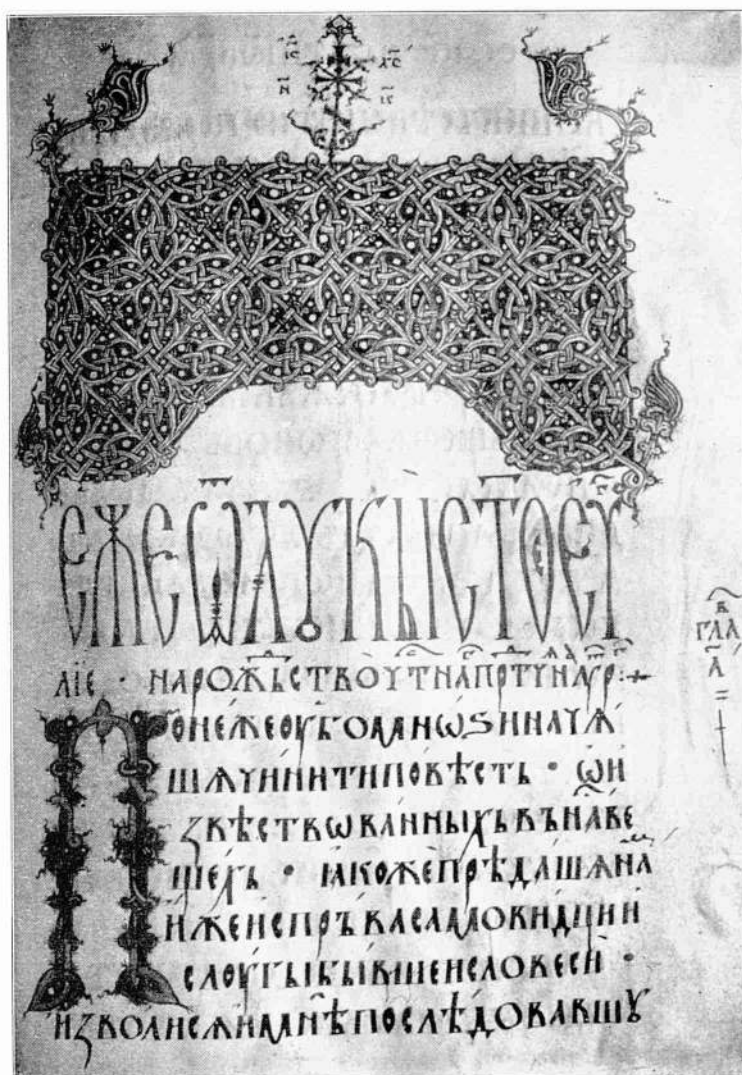 І҃С Х҃С
Н҃ І҃С
ЕЖЕ Ѿ ЛУКЫ СТОЕ ЕУ҃Г
ЛІЕ · НА РОЖЬСТВО
ПОНЕЖЕ ОУБО МНѠЅИ НАЧѦ
ШѦ ЧИНИТИ ПОВѢСТЬ · Ѡ И
ЗВѢСТВѠВАННЫХЬ ВЪ НА ВЕ
ЩЕХЬ · ІАКОЖЕ ПРѢДАШѦ НА
ИЖЕ ИСПРЪВА САМОВИДЦИ И
СЛОУГЫ БЫВШЕИ СЛОВЕСИ ·
ИЗВОЛИСѦ И МНѢ ПОСЛѢДОВАВШꙊ
В҃
ГЛА
А҃